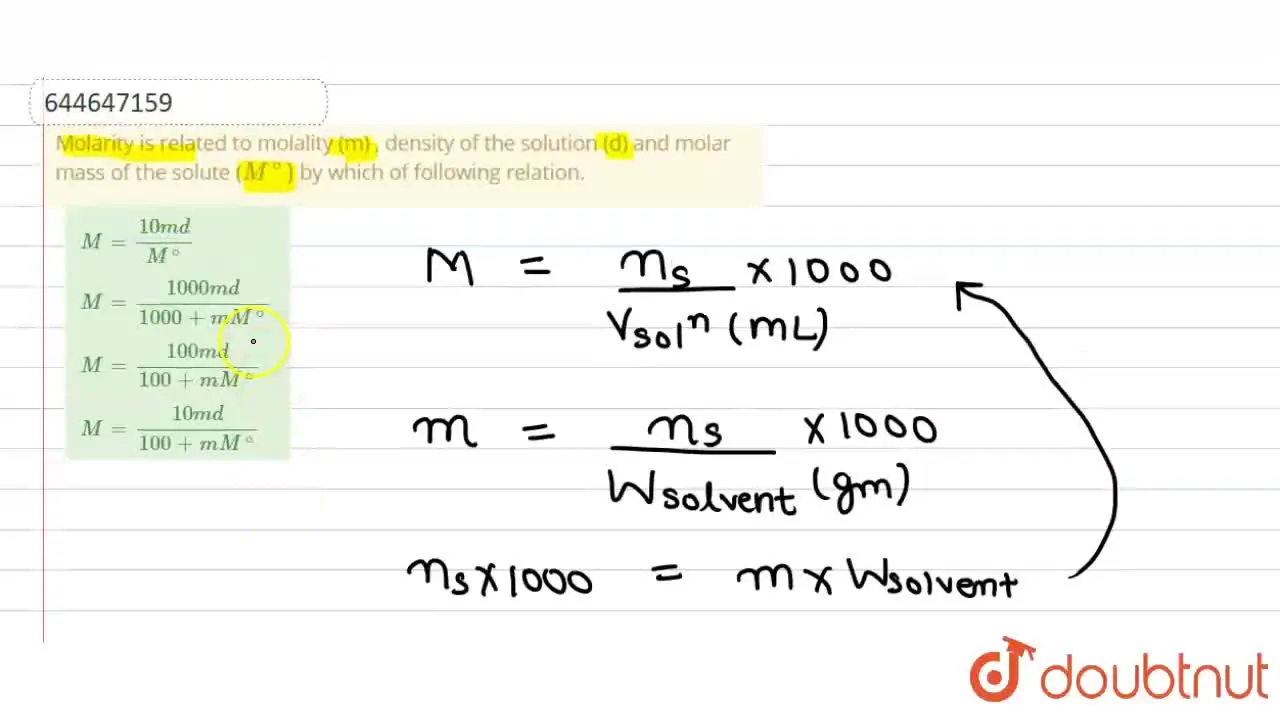 644647159
Molarity is related to molality (m) , density of the solution (d) and molar
mass of the solute (M°) by which of following relation.
M = 10md / M°
M = 1000md / 1000 + mM°
M = 100md / 100 + mM°
M = 10md / 100 + mM°
M = ns / Vsolⁿ (mL) × 1000
m = ns / Wsolvent (gm) × 1000
ns × 1000 = m × Wsolvent
doubtnut